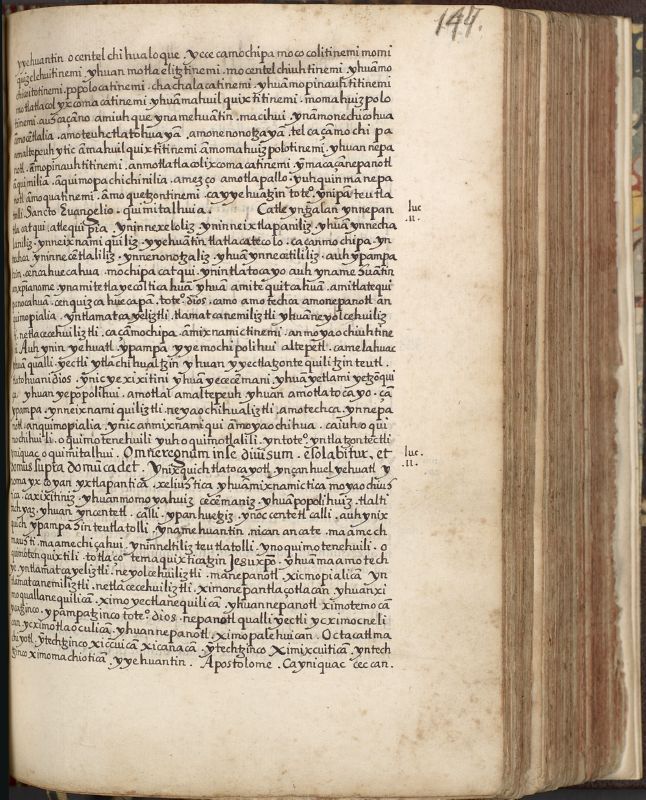 147.
yvehuantin ocentel chihualoque. ycce camochipa moco colitinemi momi
quizelchuitinemi. yhuan motla elitztinemi. mo centel chiuhtinemi. yhuāmo
totinemi. popolocatinemi. chachalacatinemi. yhuāmopinauhtitinemi
motlatlacolyxcomacatinemi. yhuāmahuilquixtitinemi. momahuizpolo
tinemi. auh caçāno amiuhque ynamehuantin. macihui. ynāmonechicohua
āmocētlalia. amoteuhctlatohuayā. amonenonotzaya. tel caçāmo chi pa
amaltepeuh ytic āmahuilquixtitinemi āmomahuizpolotinemi. yhuan nepa
notl. āmopinauhtitinemi. anmotlatlacolixcomacatinemi. ynmacaçānepanotl
āquimilia. āquimopachichinilia. amezço amotlapallo. yuhquinmanepa
notl āmoquatinemi. āmoquetzontinemi. cayyehuatzin toteo. ynipā teutla
tolli. Sancto Euangelio. quimitalhuia. Catle yngalan ynnepan
luc
.11.
tla catqui. atlequi pia yninnexeloliz. yninneixtlapaniliz. yhuā ynnecha
laniliz. ynneixnamiquiliz. yyehuantin tlatlacatecolo. ca canmochipa. yn
techca ynninecētlaliliz. ynnenonotzaliz. yhuā ynnecētililiz. auh ypampa
tin. cenca huecahua. mochipa catqui. ynintlatocayo auh yname
xp̄ianome. ynamitetlayecolticahuā yhuā amitequitcahuā. amitlatequi
panocahuā. cenquizca huecapā. toteo. dios. camo amotechca amonepanotl ān
quimopialia. yntlamatcayeliztli. tlamatcanemiliztli yhuāneyolcehuiliz
tli. netlacecehuiliztli. caçāmochipa. āmixnamictinemi. anmoyaochiuhtine
mi. Auh ynin yehuatl ypampa yyemochipolihui altepetl. camelahuac
huā qualli. yectli ytlachihualtzin yhuan yyectlazontequilitzin teutl.
tlatohuani dios. ynic yexixitini yhuā yececēmani. yhuā yetlami yetzōqui
ça yhuan yepopolihui. amotlal amaltepeuh yhuan amotlatocayo. ça
ypampa. ynneixnamiquiliztli. neyaochihualiztli. amotechca. ynnepa
notl. anquimopialia. ynic anmixnamiqui āmoyaochihua. caiuh oqui
mochihuili. oquimotenehuili yuh oquimotlalili. yntoteo. yntlatzontectli
yniquac oquimitalhui. Omneregnum inse diuisum. ēsolabitur, et
luc.
.11.
domus supra domū cadet. Ynixquich tlatocayotl yncan huel yehuatl y
noma yxcoyan yxtlapantica. xeliuhtica yhuāmixnamictica moyaochiuh
tica. caxixitiniz. yhuanmomoyahuiz cecēmaniz. yhuā popolihuiz. tlalti
tech yaz. yhuan yncentetl calli. ypan huetziz. ynoc centetl calli. auh ynix
quich ypampa Sin teutlatolli. ynamehuantin. nican ancate. maamech
mauhti. maamechiçahui. ynin neltiliz teutlatolli. ynoquimotenehuili. o
quimotenquixtili. totlaçotemaquixticatzin Jesuxp̄o. yhuā maamotech
ye. yntlamatcayeliztli. neyolcehuiliztli. mānepanotl. xicmopialicā yn
tlamatcanemiliztli. netlacecehuiliztli. ximonepantlaçotlacan. yhuanxi
moquallanequilicā. ximoyectlanequilicā. yhuannepanotl ximotemocā
ycatzinco. ypampatzinco toteo. dios. nepanotl qualli yectli ycximocneli
can. ycximotlaoculicā. yhuannepanotl. ximopalehuican. Octacatl ma
chiyotl. ytechtzinco xiccuicā xicanacā. ytechtzinco Ximixcuiticā. yntech
tzinco ximomachiotican yyehuantin. Apostolome. Cayniquac ceccan.